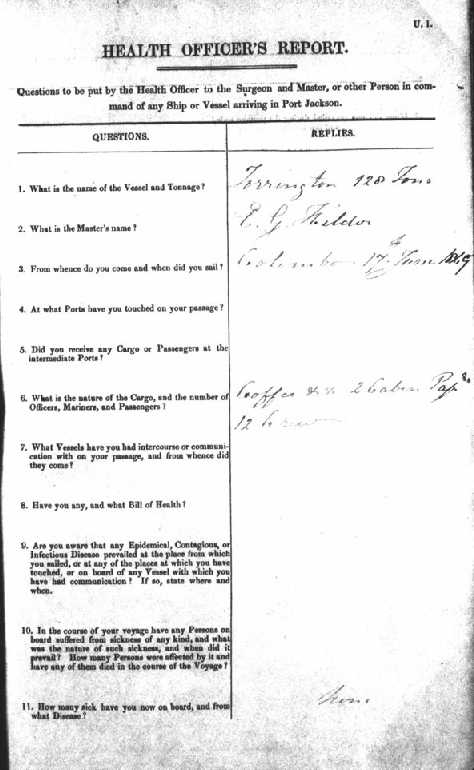 U. 1.
HEALTH OFFICER'S REPORT.
Questions to be put by the Health Officer to the Surgeon and Master, or other Person in com-
mand of any Ship or Vessel arriving in Port Jackson.
QUESTIONS. REPLIES.
1. What is the name of the Vessel and Tonnage? Torrington 128 Tons
2. What is the Master's name? E. G.
3. From whence do you come and when did you sail? Colombo 17th June
4. At what Ports have you touched on your passage?
5. Did you receive any Cargo or Passengers at the
intermediate Ports?
6. What is the nature of the Cargo, and the number of Coffee &c 2 Cabin
Officers, Mariners, and Passengers? 12 Crew
7. What Vessels have you had intercourse or communi-
cation with on your passage, and from whence did
they come?
8. Have you any, and what Bill of Health?
9. Are you aware that any Epidemical, Contagious, or
Infectious Disease prevailed at the place from which
you sailed, or at any of the places at which you have
touched, or on board of any Vessel with which you
have had communication? If so, state where and
when.
10. In the course of your voyage have any Persons on
board suffered from sickness of any kind, and what
was the nature of such sickness, and when did it
prevail? How many Persons were affected by it and
have any of them died in the course of the Voyage?
11. How many sick have you now on board, and from
what Disease?